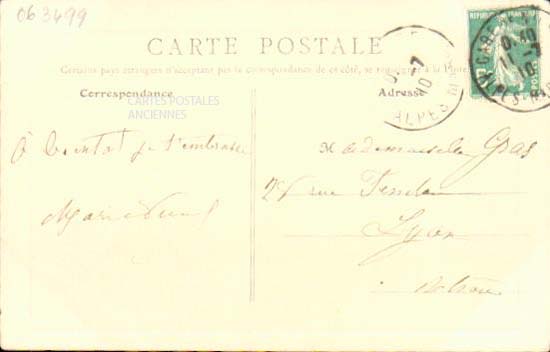 063499
CARTE POSTALE
Certains pays étrangers n'acceptant pas la correspondance de ce côté, se renseigner à la Poste
Correspondance
Adresse
CARTES POSTALES
ANCIENNES
REPUBLIQUE FRANÇAISE
ALPES M
À bientôt je t'embrasse
Mademoiselle Gras
26 rue
Lyon
Rhône